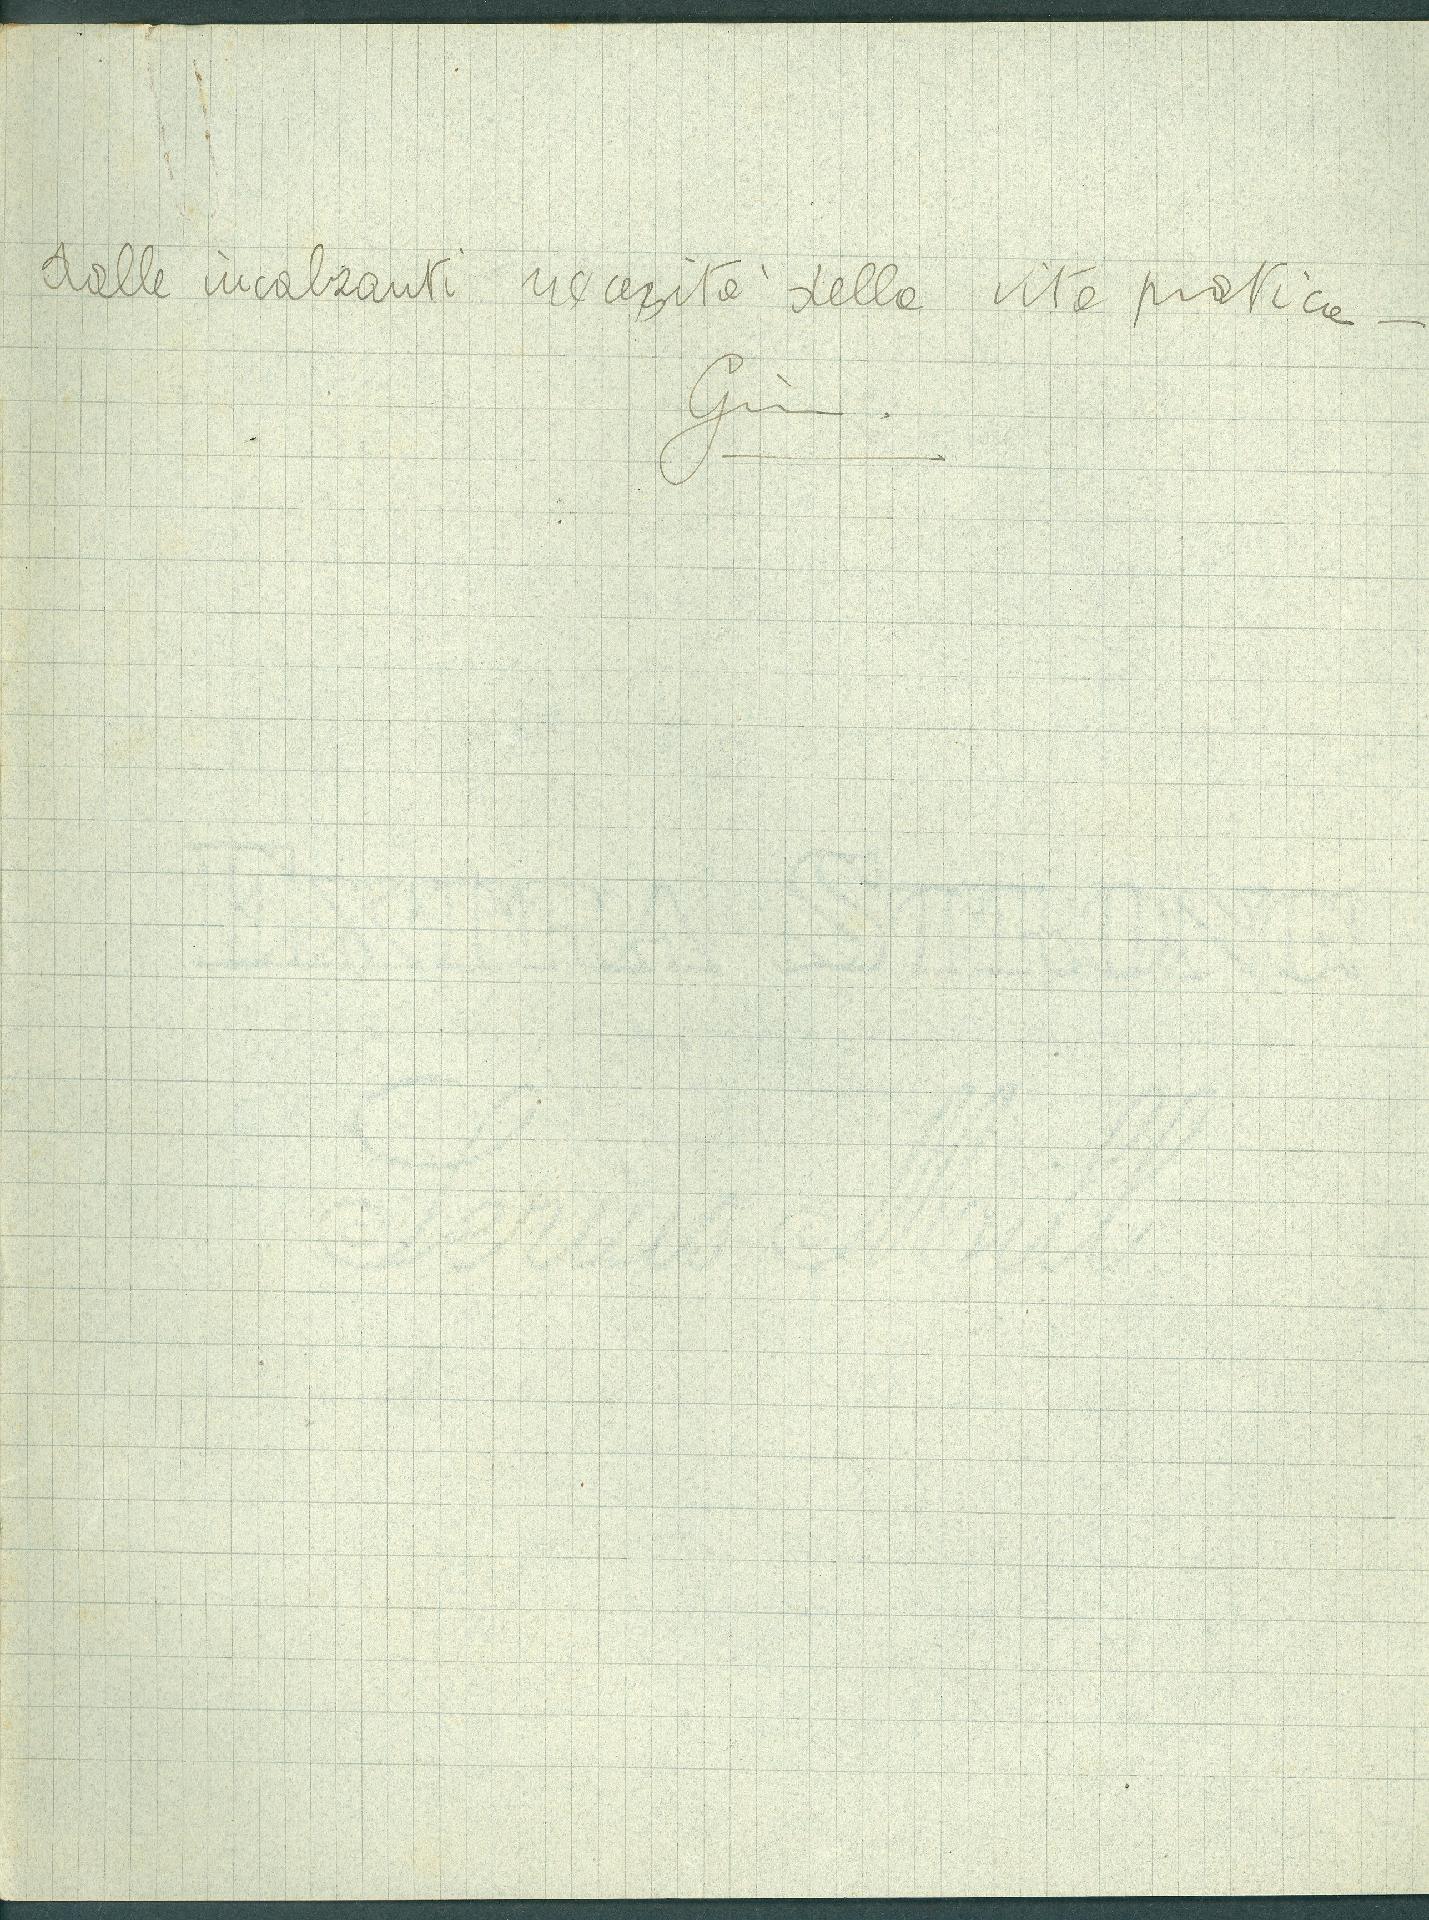 dalle incalzanti necessità della vita pratica —
Gin.